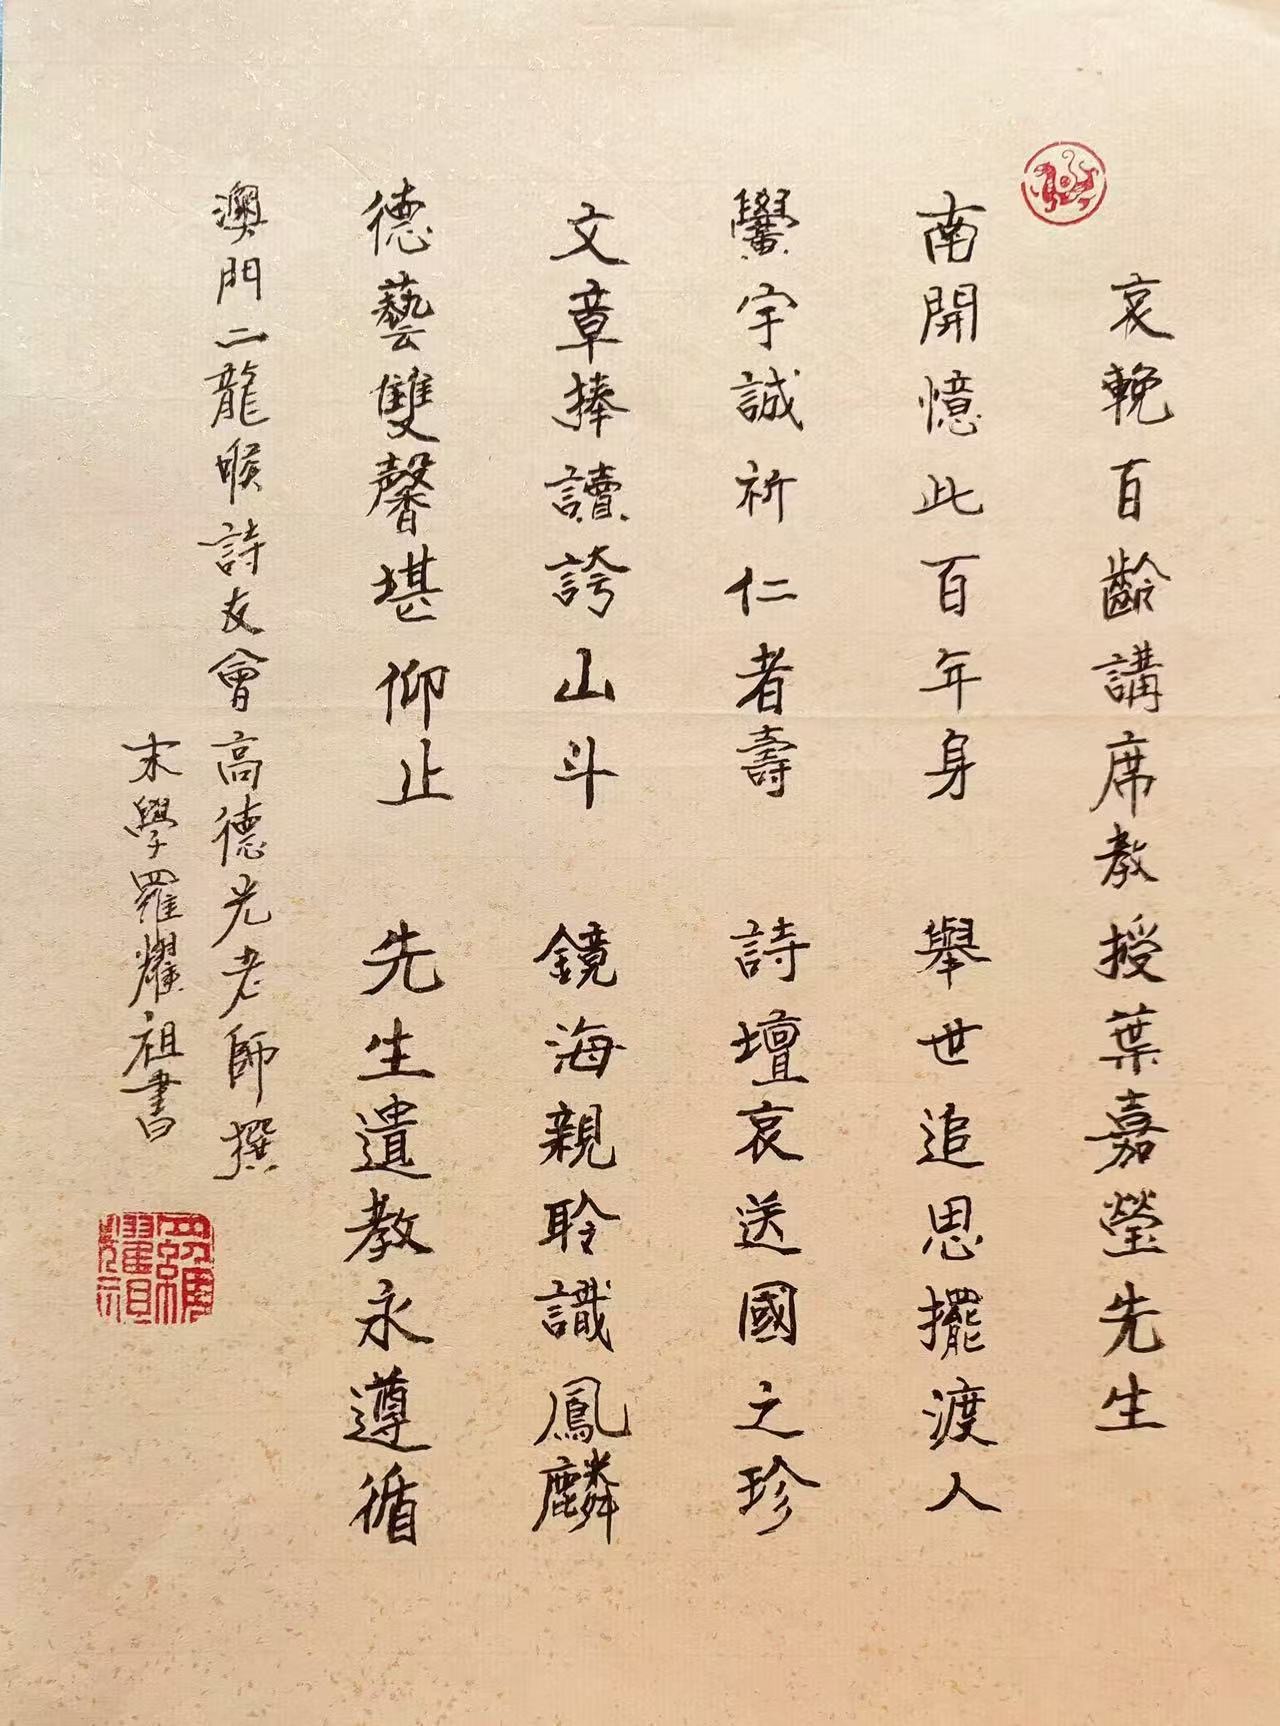 哀輓百齡講席教授葉嘉瑩先生
南開憶此百年身 舉世追思擺渡人
黌宇誠祈仁者壽 詩壇哀送國之珍
文章捧讀誇山斗 鏡海親聆識鳳麟
德藝雙馨堪仰止 先生遺教永遵循
澳門二龍喉詩友會高德光老師撰
末學羅耀祖書
羅耀祖